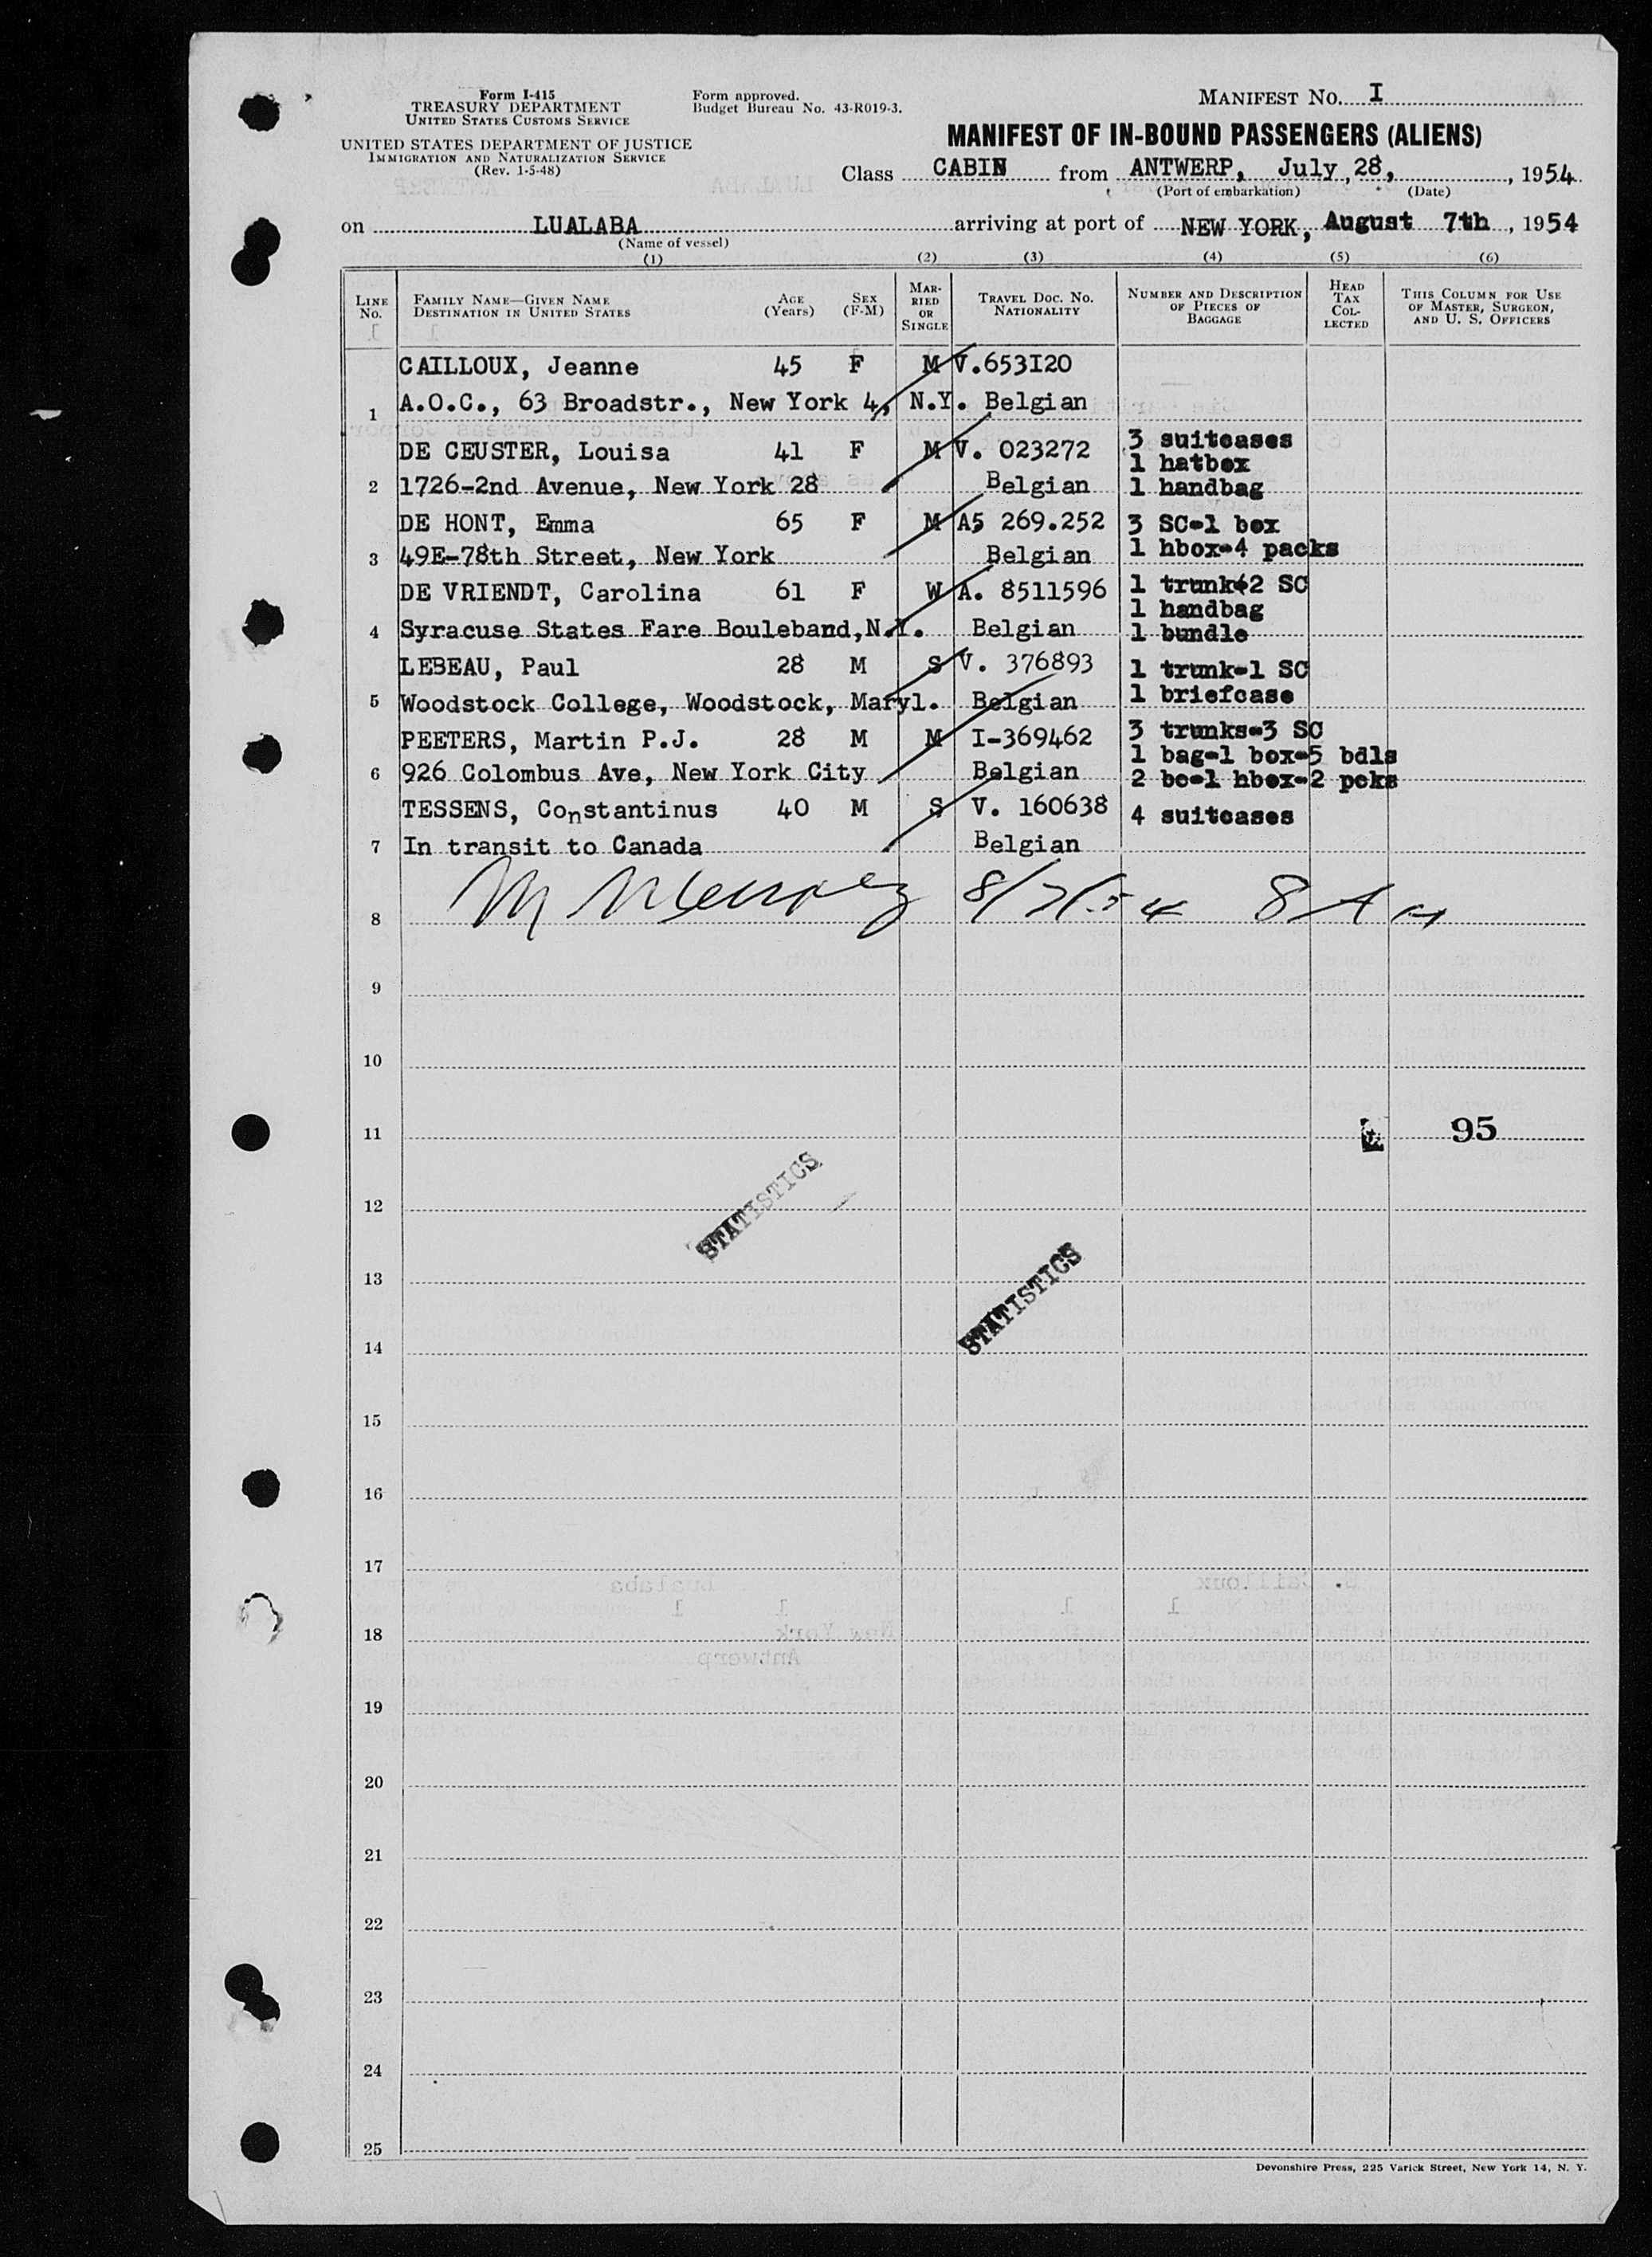 Form I-415
TREASURY DEPARTMENT
UNITED STATES CUSTOMS SERVICE
UNITED STATES DEPARTMENT OF JUSTICE
IMMIGRATION AND NATURALIZATION SERVICE
(Rev. 1-5-48)
Form approved.
Budget Bureau No. 43-R019-3.
MANIFEST NO. I
MANIFEST OF IN-BOUND PASSENGERS (ALIENS)
Class CABIN from ANTWERP, July 28, , 1954
(Port of embarkation) (Date)
on LUALABA arriving at port of NEW YORK, August 7th, 1954
(Name of vessel)
(1) (2) (3) (4) (5) (6)
LINE NO. FAMILY NAME—GIVEN NAME DESTINATION IN UNITED STATES AGE (Years) SEX (F-M) MARRIED OR SINGLE TRAVEL DOC. NO. NATIONALITY NUMBER AND DESCRIPTION OF PIECES OF BAGGAGE HEAD TAX COLLECTED THIS COLUMN FOR USE OF MASTER, SURGEON, AND U. S. OFFICERS
CAILLOUX, Jeanne 45 F M V.653I20
1 A.O.C., 63 Broadstr., New York 4, N.Y. Belgian
DE CEUSTER, Louisa 41 F M V. 023272 3 suitcases
1 hatbox
2 1726-2nd Avenue, New York 28 Belgian 1 handbag
DE HONT, Emma 65 F M A5 269.252 3 SC-1 box
3 49E-78th Street, New York Belgian 1 hbox-4 packs
DE VRIENDT, Carolina 61 F W A. 8511596 1 trunk-2 SC
1 handbag
4 Syracuse States Fare Bouleband,N.Y. Belgian 1 bundle
LEBEAU, Paul 28 M S V. 376893 1 trunk-1 SC
5 Woodstock College, Woodstock, Maryl. Belgian 1 briefcase
PEETERS, Martin P.J. 28 M M I-369462 3 trunks-3 SC
1 bag-1 box-5 bdls
6 926 Colombus Ave, New York City Belgian 2 bc-1 hbox-2 pcks
TESSENS, Constantinus 40 M S V. 160638 4 suitcases
7 In transit to Canada Belgian
8 8/7/54 8 AM
9
10
11 95
12
STATISTICS
13
STATISTICS
14
15
16
17
18
19
20
21
22
23
24
25
Devonshire Press, 225 Varick Street, New York 14, N. Y.